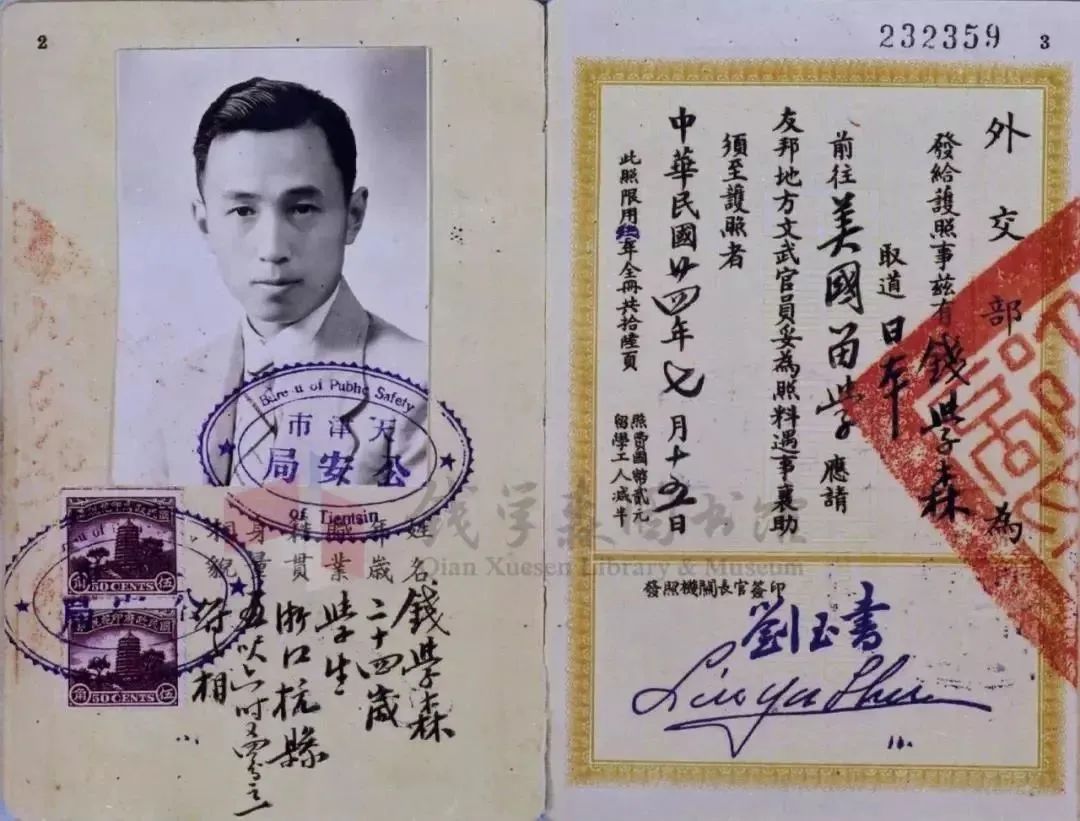 2
Bureau of Public Safety
天津市
公安局
of Tientsin
姓名 錢學森
年歲 二十四歲
職業 學生
籍貫 浙江杭縣
身量 五呎六吋又四分之一
相貌 符相
50 CENTS
50 CENTS
钱学森图书馆
Qian Xuesen Library & Museum
232359
3
外交部 為
發給護照事茲有 錢學森
取道 日本
前往 美國 留學 應請
友邦地方文武官員妥為照料遇事襄助
須至護照者
中華民國廿四年七月十五日
此照限用 年全冊共拾陸頁
照費國幣貳元
留學工人減半
發照機關長官簽印
劉玉書
Liu Yu Shu